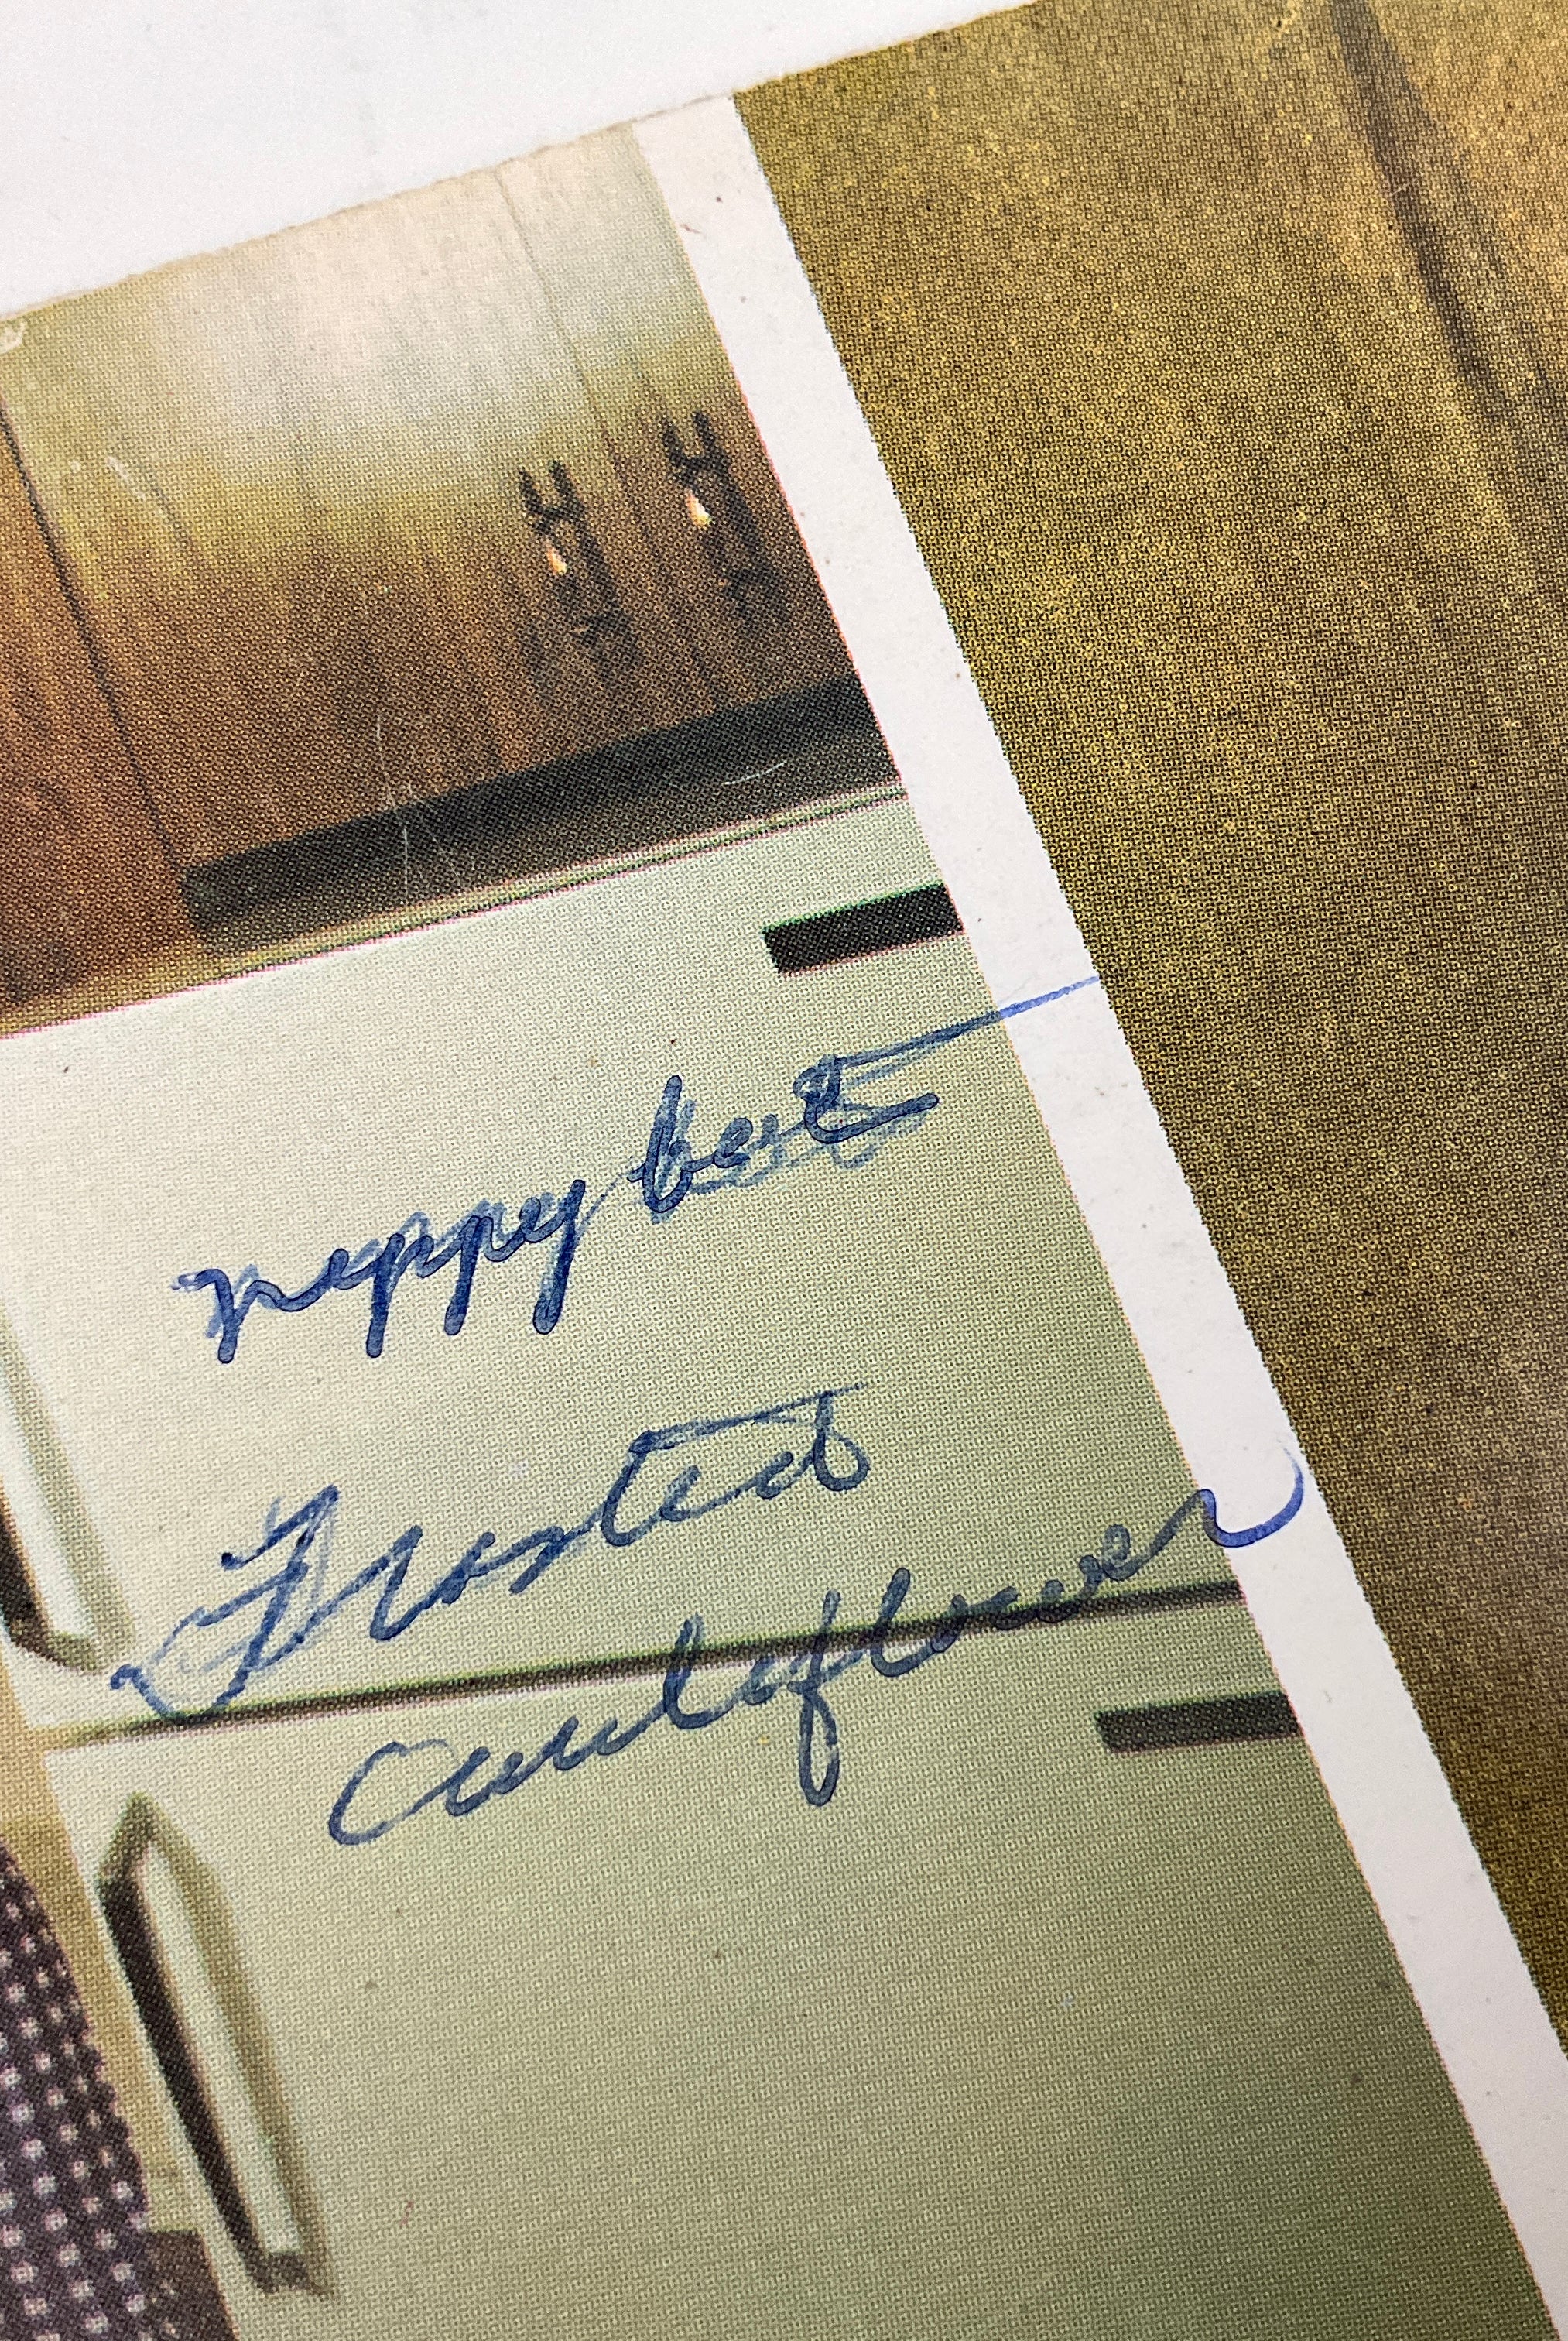 neppy best
Frosted
Cauleflower